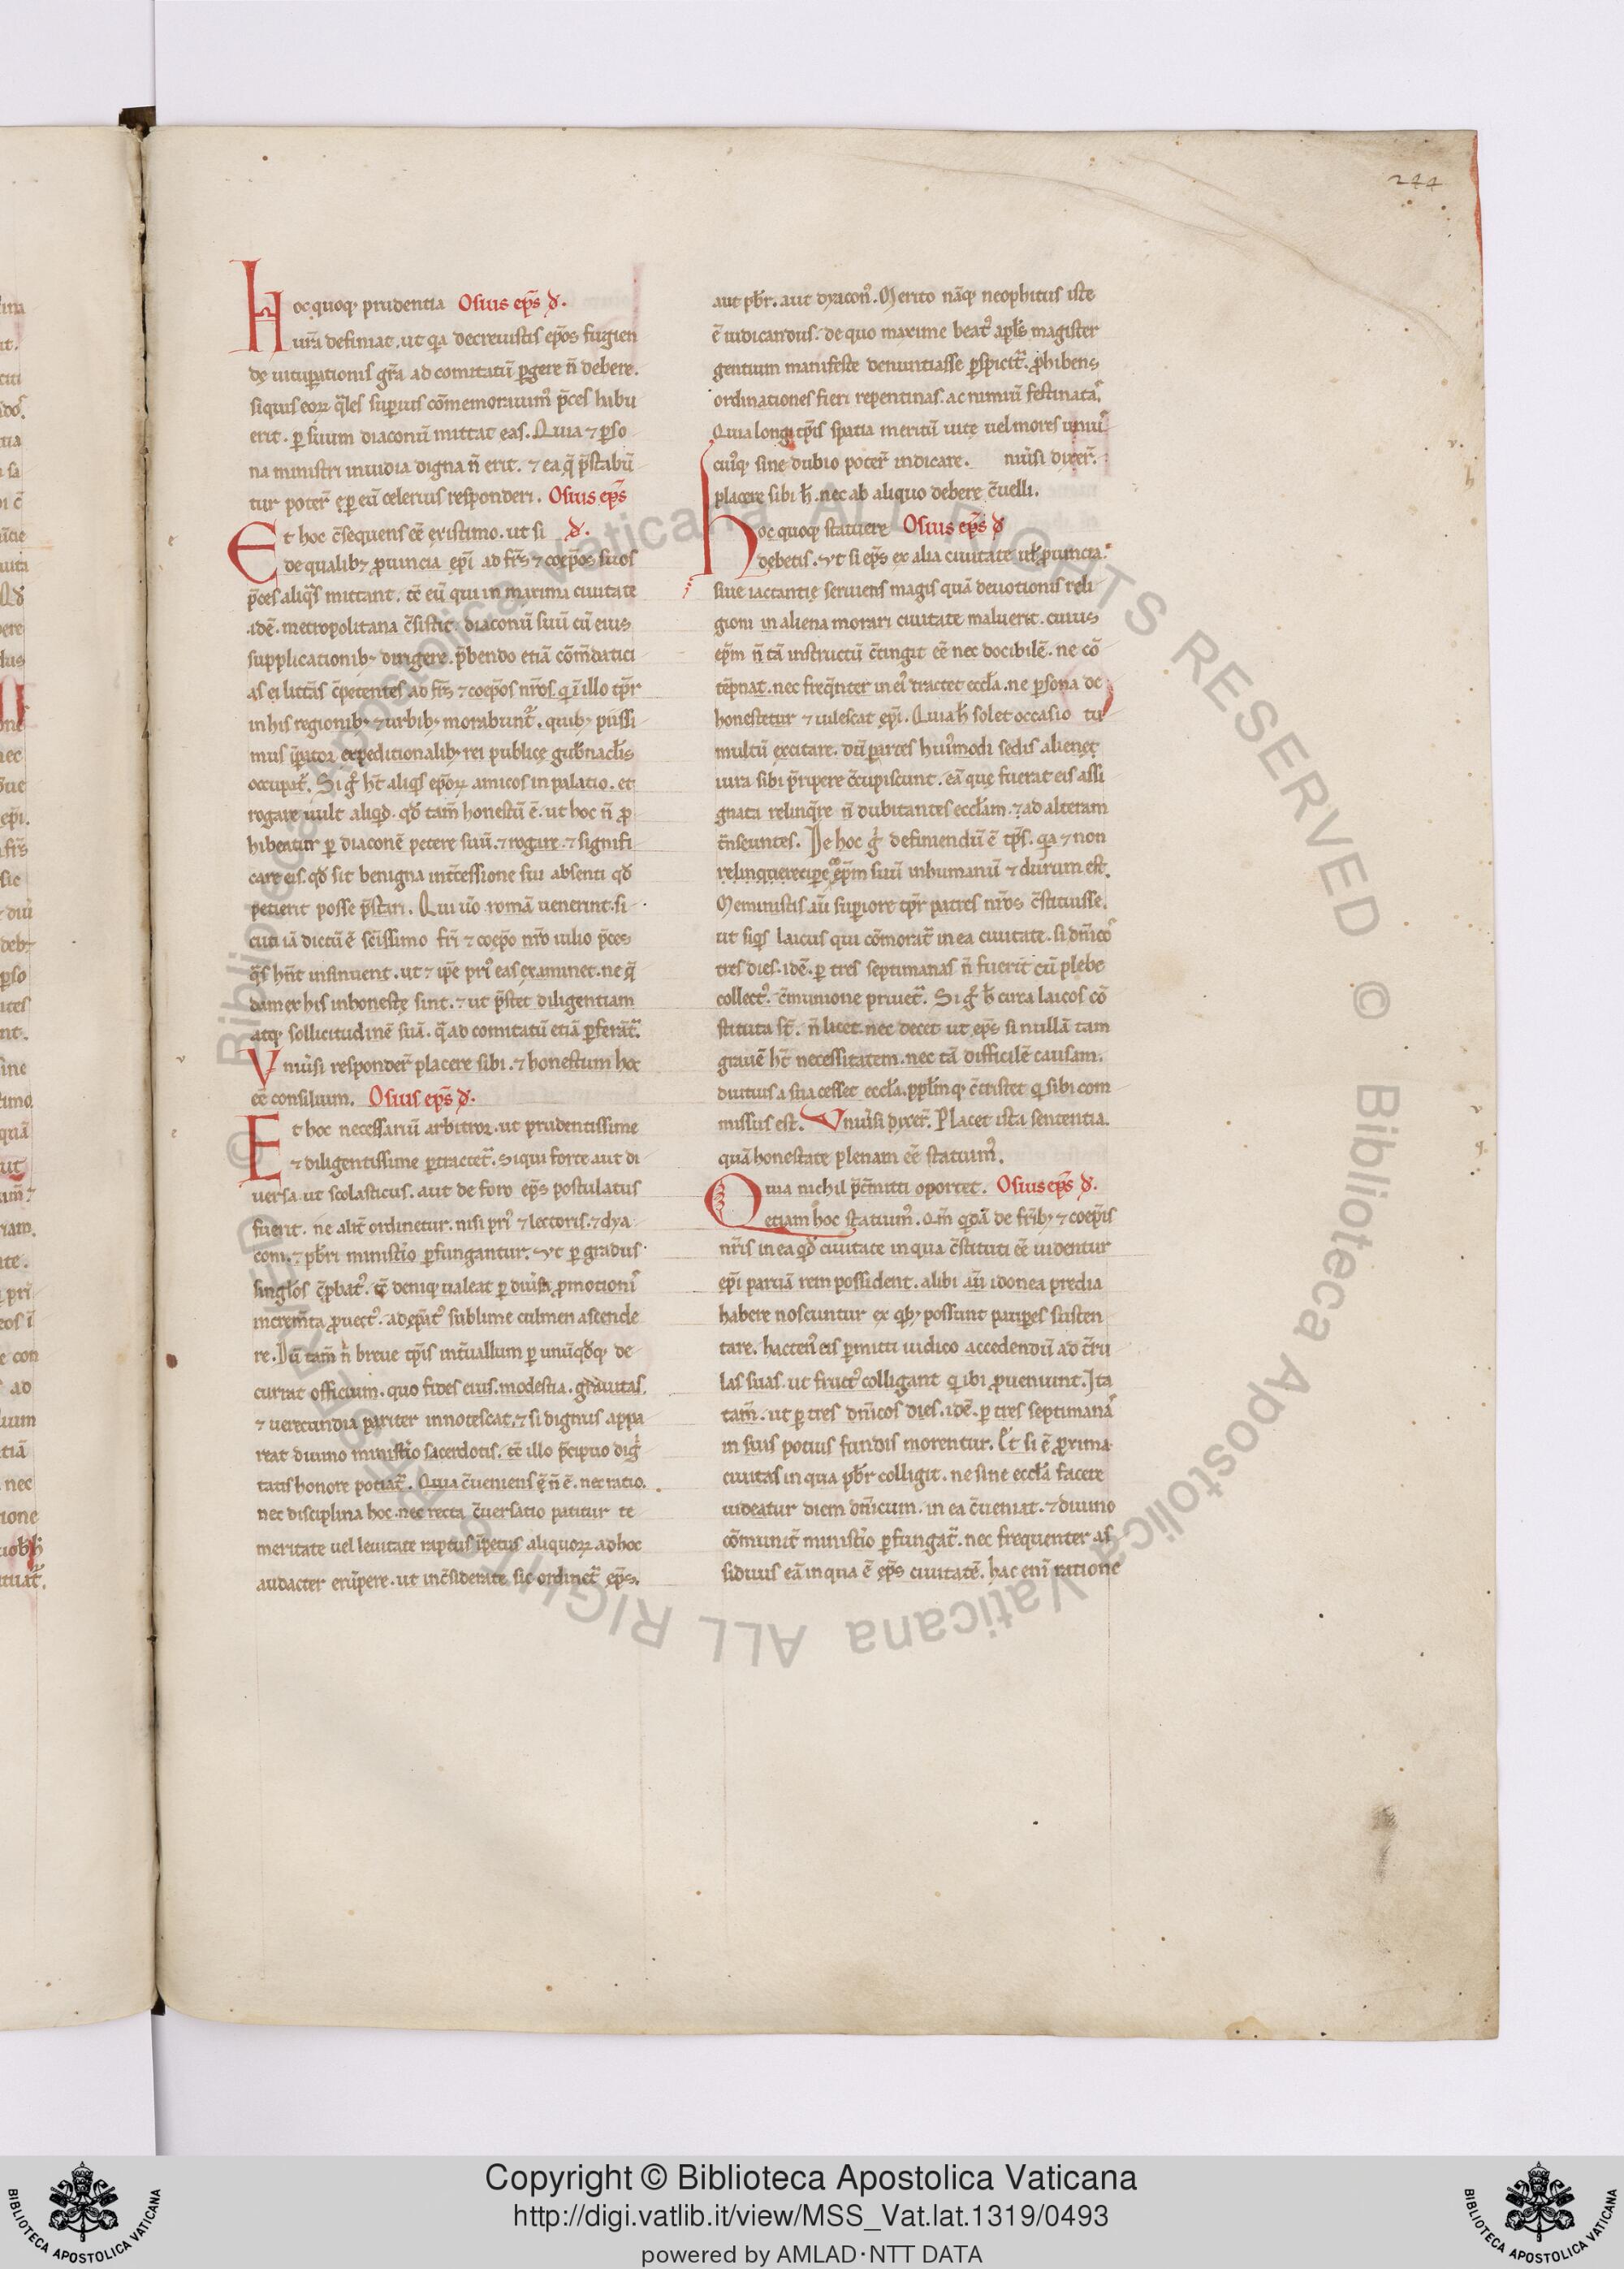 244
Hoc quoq; prudentia Osius ep̃s d̃.
ur̃a definiat. ut q̃a decreuistis ep̃os fugien
dę uituꝑationis gr̃a ad comitatũ ꝑgere ñ debere.
siquis eoꝝ q̃les suꝑius cõmemorauimꝰ p̃ces habu
erit. ꝑ suum diaconũ mittat eas. Quia ⁊ ꝑso
na ministri inuidia digna ñ erit. ⁊ ea q̃ p̃stabũ
tur poter̃ ꝑ eũ celerius responderi. Osius ep̃s
Et hoc c̃sequens eẽ existimo. ut si d̃.
de qualib; ꝓuincia ep̃i ad fr̃s ⁊ coep̃os suos
p̃ces aliq̃s mittant. tẽ eũ qui in maxima ciuitate
.idẽ. metropolitana c̃sistit. diaconũ suũ cũ eius
supplicationib; dirigere. p̃bendo etiã cõm̃datici
as ei litt̃as c̃petentes ad fr̃s ⁊ coep̃os nr̃os. q̃ ĩ illo tp̃r
in his regionib; ⁊ urbib; morabunt᷑. quib; piissi
mus ip̃ator expeditionalib; rei publicę gub̃nacl̃is
occupat᷑. Si g̃ hñt aliq̃s ep̃oꝝ amicos in palatio. et
rogare uult aliq̃d. qd̃ tam̃ honestũ ẽ. ut hoc ñ ꝓ
hibeatur ꝑ diaconẽ petere suũ. ⁊ rogare. ⁊ signifi
care eis. qd̃ sit benigna int̃cessione sui absenti qd̃
petierit posse p̃stari. Qui ũo romã uenerint. si
cuti iã dictũ ẽ sc̃issimo fr̃i ⁊ coep̃o nr̃o iulio p̃ces
q̃s hñt insinuent. ut ⁊ ip̃e priꝰ eas examinet. ne q̃
dam ex his inhonestę sint. ⁊ ut p̃stet diligentiam
atq; sollicitudinẽ suã. q̃ ad comitatũ etiã ꝑferãt᷑.
Vniũsi responder̃ placere sibi. ⁊ honestum hoc
eẽ consilium. Osius ep̃s d̃.
Et hoc necessariũ arbitror. ut prudentissime
⁊ diligentissime ꝑtractet᷑. siqui forte aut di
uersa. ut scolasticus. aut de foro ep̃s postulatus
fuerit. ne alit̃ ordinetur. nisi priꝰ ⁊ lectoris. ⁊ dya
coni. ⁊ pb̃ri ministĩo ꝑfungantur. ut ꝑ gradus
singl̃os c̃pbatꝰ. tẽ deniq; ualeat ꝑ diũsa ꝓmotionũ
increm̃ta ꝓuectꝰ. ad ep̃atꝰ sublime culmen ascende
re. Dũ tam̃ ñ breue tp̃is int̃uallum ꝑ unũqd̃q; de
currat officium. quo fides eius. modestia. grauitas.
⁊ uerecundia pariter innotescat. ⁊ si dignus appa
reat diuino ministĩo sacerdotis. tẽ illo p̃cipuo dig̃
tatis honore potiat᷑. Quia c̃ueniens ñ ẽ. nec ratio.
nec disciplina hoc. nec recta c̃uersatio patitur te
meritate uel leuitate raptus ĩpetus aliquoꝝ ad hoc
audacter erũpere. ut inc̃siderate sic ordinet᷑ ep̃s.
aut pb̃r. aut dyaconꝰ. Merito nãq; neophitus iste
ẽ iudicandus. de quo maxime beatꝰ apl̃s magister
gentium manifeste denuntiasse ꝑspicit᷑. ꝓhibens
ordinationes fieri repentinas. ac nimiũ festinatas.
Quia longi tp̃is spatia meritũ uitę uel mores uniꝰ
cuiꝰq; sine dubio poter̃ indicare. niũsi dixer̃.
placere sibi h̃. nec ab aliquo debere c̃uelli.
Hoc quoq; statuere Osius ep̃s d̃
debetis. ut si ep̃s ex alia ciuitate ul̃ ꝓuincia
siue iactantię seruiens magis quã deuotionis reli
gioni in aliena morari ciuitate maluerit. cuius
ep̃m ñ tã instructũ c̃tingit eẽ nec docibilẽ. ne cõ
tẽpnat. nec freq̃nter in eiꝰ tractet eccl̃a. ne ꝑsona de
honestetur ⁊ uilescat ep̃i. Quia h̃ solet occasio tu
multũ excitare. dũ partes huiꝰmodi sedis alienę
iura sibi p̃ripere c̃cupiscunt. eã que fuerat eis assi
gnata relinq̃re ñ dubitantes eccl̃am. ⁊ ad alteram
t̃nseuntes. De hoc g̃ definiendũ ẽ tp̃s. q̃a ⁊ non
recipere ep̃m suũ inhumanũ ⁊ durum est.
Meministis aũ suꝑiore tp̃r patres nr̃os c̃stituisse.
ut siq̃s laicus qui cõmorat᷑ in ea ciuitate. si dñicos
tres dies. idẽ. ꝑ tres septimanas ñ fuerit cũ plebe
collectꝰ. c̃munione priuet᷑. Si g̃ h̃ circa laicos cõ
stituta st̃. ñ licet. nec decet ut ep̃s si nullã tam
grauẽ ht̃ necessitatem. nec tã difficilẽ causam.
diutius a sua cesset eccl̃a. ppl̃mq; c̃tristet q̃ sibi com
missus est. Vniũsi dyxer̃. Placet ista sententia.
quã honestate plenam eẽ statuimꝰ.
Quia nichil p̃t̃mitti oportet. Osius ep̃s d̃.
etiam hoc statuimꝰ. Qm̃ q̃dã de fr̃ib; ⁊ coep̃is
nr̃is in ea qd̃ ciuitate in qua c̃stituti eẽ uidentur
ep̃i paruã rem possident. alibi aũ idonea predia
habere noscuntur ex q̃b; possunt pauꝑes susten
tare. hactenꝰ eis ꝑmitti iudico accedendũ ad c̃ru
las suas. ut fructꝰ colligant q̃ ibi ꝓueniunt. Ita
tam̃. ut ꝑ tres dñicos dies. idẽ. ꝑ tres septimanas
in suis potius fundis morentur. Et si ẽ ꝓxima
ciuitas in qua pb̃r colligit. ne sine eccl̃a facere
uideatur diem dñicum. in ea c̃ueniat. ⁊ diuino
cõmunit᷑ ministĩo ꝑfungat᷑. nec frequenter as
siduus eã in qua ẽ ep̃s ciuitatẽ. hac eni ratione
Copyright © Biblioteca Apostolica Vaticana
http://digi.vatlib.it/view/MSS_Vat.lat.1319/0493
powered by AMLAD·NTT DATA
BIBLIOTECA APOSTOLICA VATICANA
BIBLIOTECA APOSTOLICA VATICANA
© Biblioteca Apostolica Vaticana ALL RIGHTS RESERVED
© Biblioteca Apostolica Vaticana ALL RIGHTS RESERVED